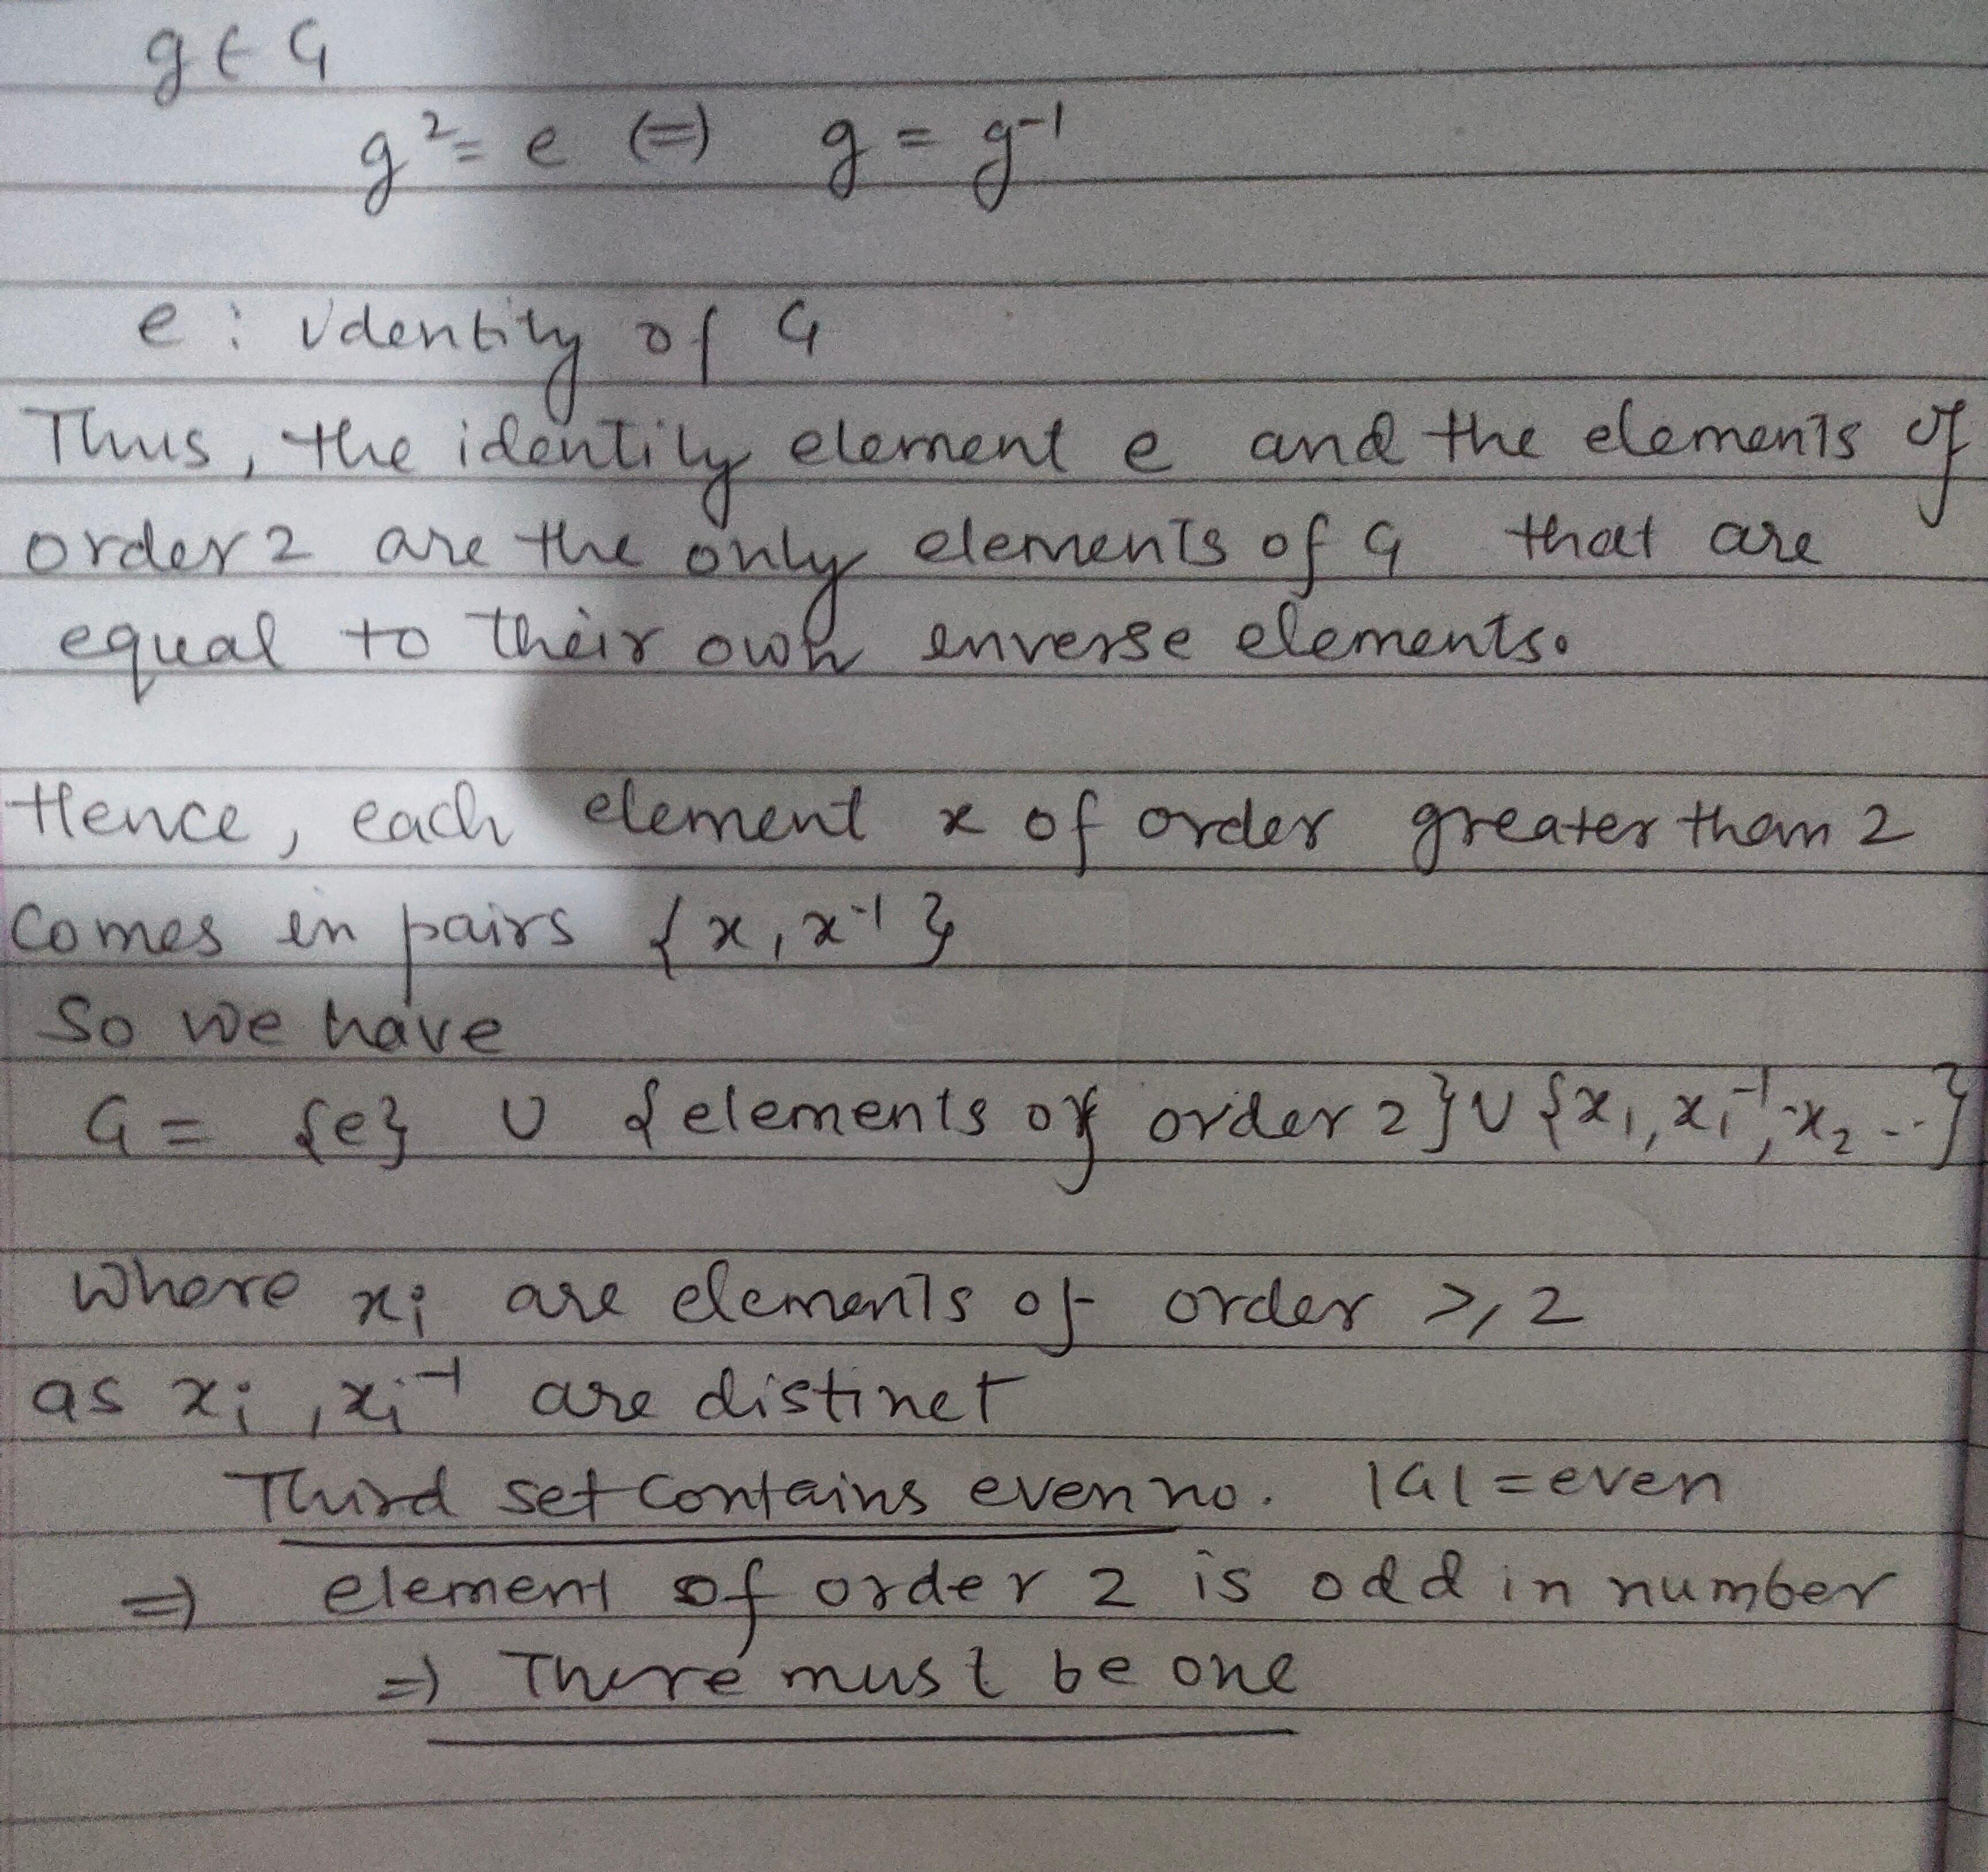 g ∈ G
g² = e (=) g = g⁻¹
e : identity of G
Thus, the identity element e and the elements of
order 2 are the only elements of G that are
equal to their own inverse elements.
Hence, each element x of order greater than 2
comes in pairs {x, x⁻¹}
So we have
G = {e} ∪ {elements of order 2} ∪ {x₁, x₁⁻¹, x₂ ...}
Where xᵢ are elements of order ≥ 2
as xᵢ, xᵢ⁻¹ are distinct
Third set contains even no. |G| = even
=) element of order 2 is odd in number
=) There must be one